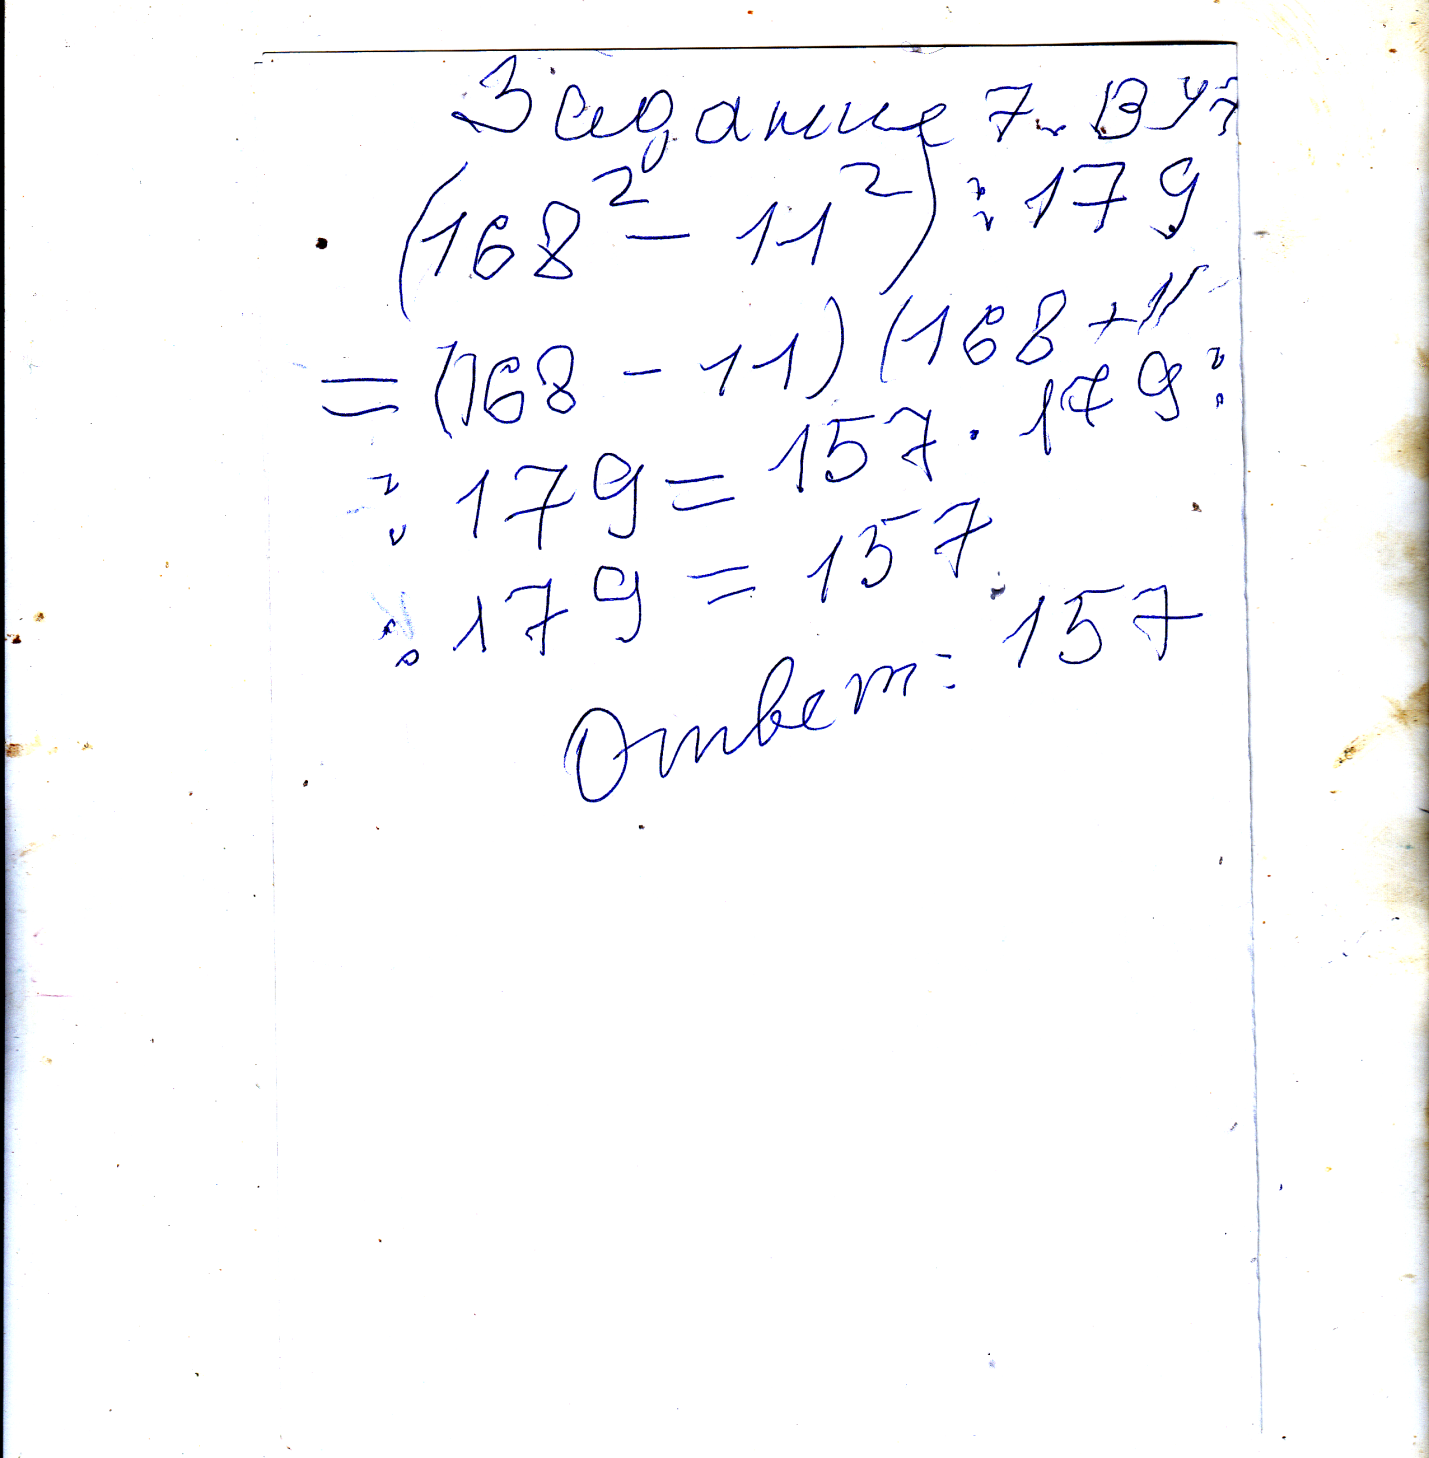 Задание 7. В 47
(168² - 11²) : 179
= (168 - 11) (168 + 11
: 179 = 157 · 179 :
: 179 = 157
Ответ: 157